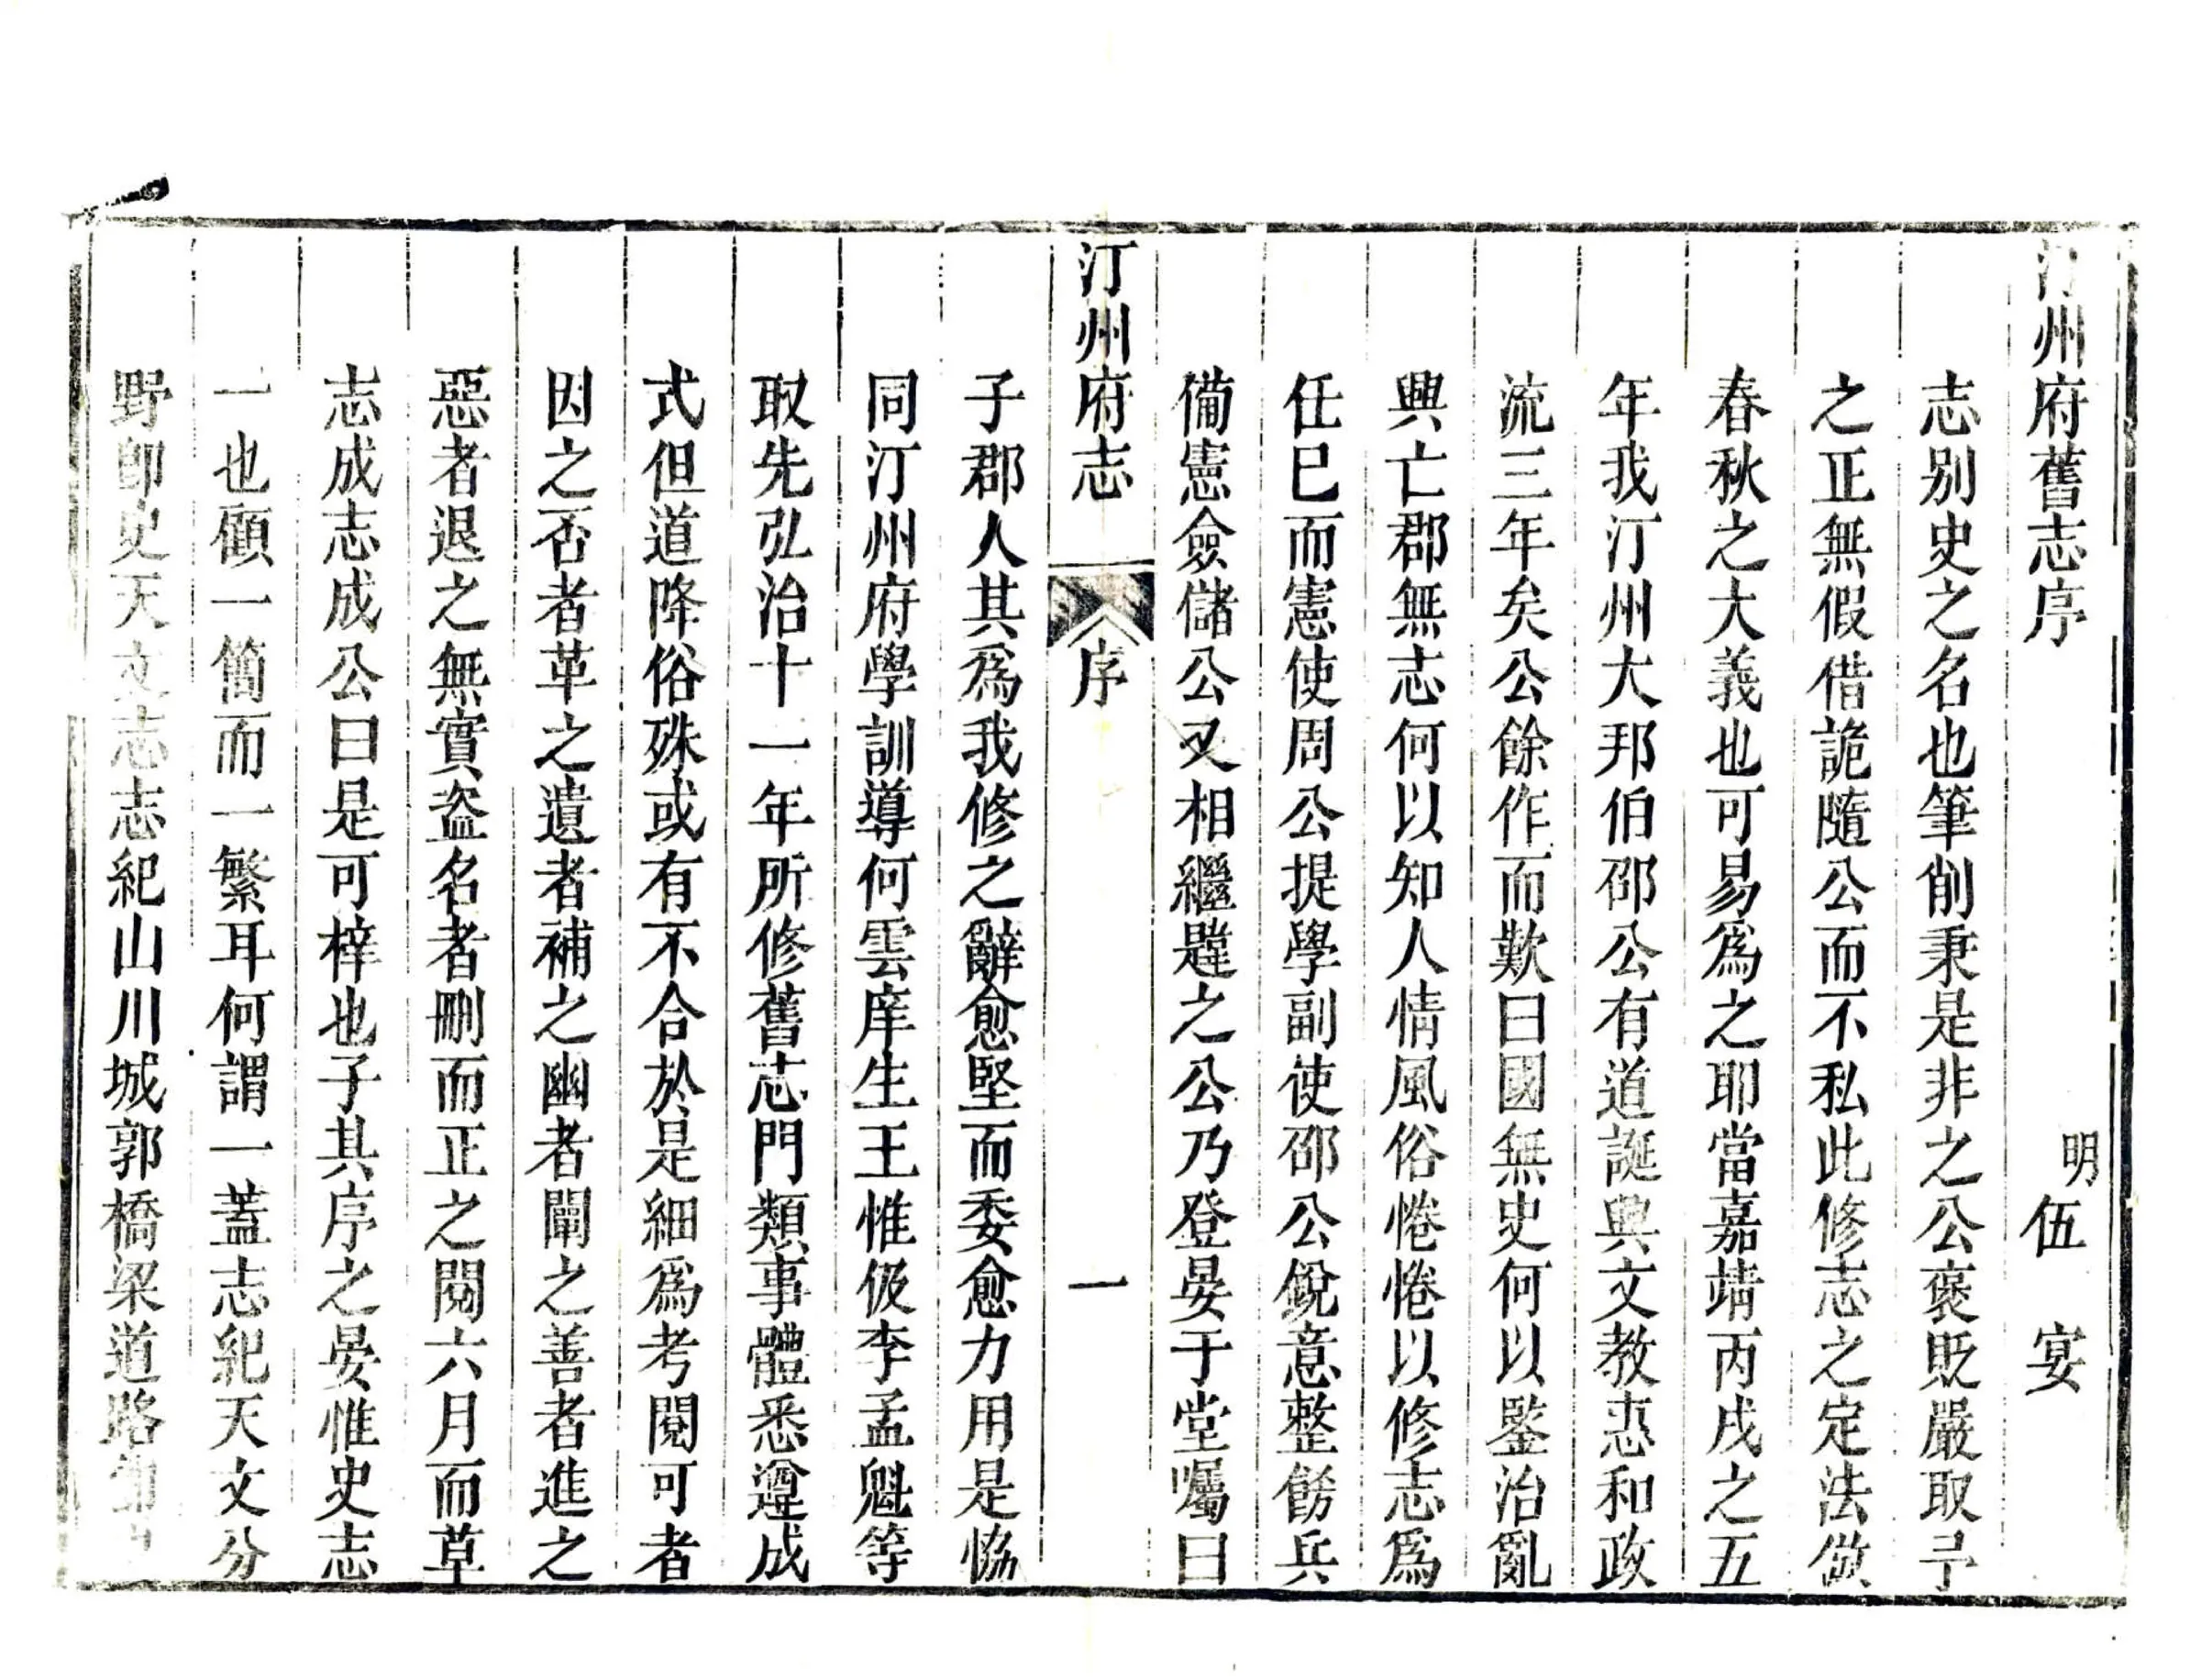 汀州府舊志序 明伍 宴
志别史之名也筆削秉是非之公褒貶嚴取予
之正無假借詭隨公而不私此修志之定法倣
春秋之大義也可易爲之耶當嘉靖丙戌之五
年我汀州大邦伯邵公有道誕興文教惠和政
流三年矣公餘作而歎曰國無史何以鑒治亂
興亡郡無志何以知人情風俗惓惓以修志爲
任已而憲使周公提學副使邵公銳意整飭兵
備憲僉儲公又相繼韙之公乃登晏于堂囑曰
汀州府志 序 一
子郡人其爲我修之辭愈堅而委愈力用是恊
同汀州府學訓導何雲庠生王惟伋李孟魁等
取先弘治十一年所修舊志門類事體悉遵成
式但道降俗殊或有不合於是細爲考閱可者
因之否者革之遺者補之幽者闡之善者進之
惡者退之無實盗名者删而正之閱六月而草
志成志成公曰是可梓也子其序之晏惟史志
一也顧一簡而一繁耳何謂一蓋志紀天文分
野卽史天文志志紀山川城郭橋梁道路卽